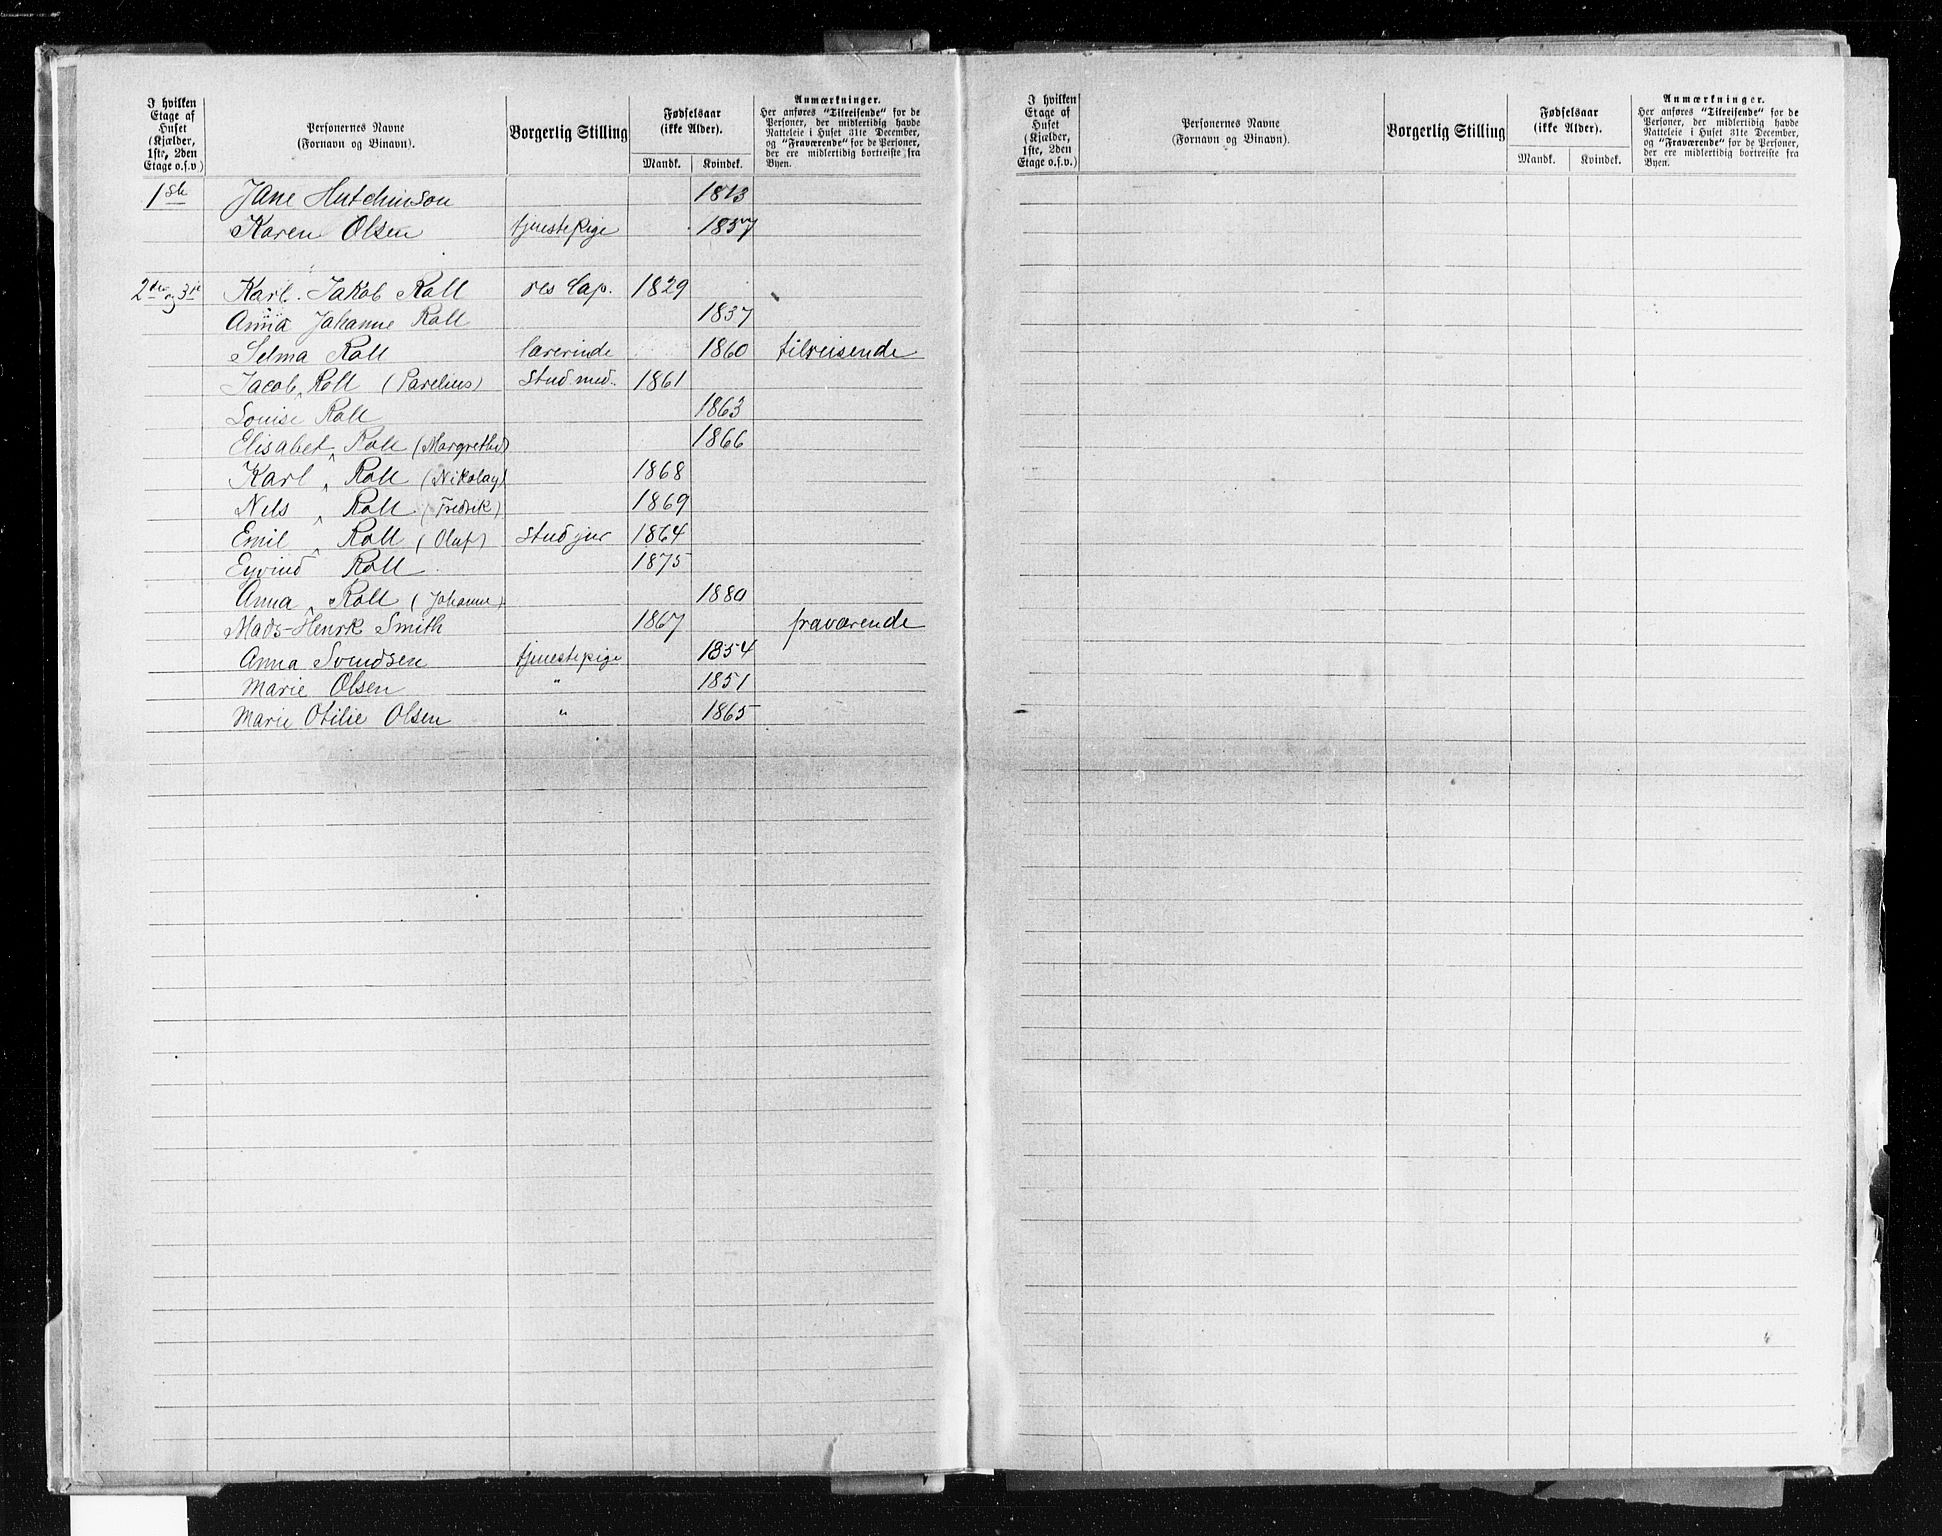 I hvilken Etage af Huset (Kjælder, 1ste, 2den Etage o.s.v.)
Personernes Navne (Fornavn og Binavn).
Borgerlig Stilling
Fødselsaar (ikke Alder).
Mandk. Kvindek.
Anmærkninger.
Her anføres "Tilreisende" for de
Personer, der midlertidig havde
Natteleie i Huset 31te December,
og "Fraværende" for de Personer,
der ere midlertidig bortreiste fra
Byen.
1ste Jane Hutchinson 1813
Karen Olsen tjenestepige 1857
2den og 3die Karl Jakob Roll res Cap. 1829
Anna Johanne Roll 1837
Selma Roll Lærerinde 1860 tilreisende
Jacob Roll (Parelius) stud.med. 1861
Louise Roll 1863
Elisabet Roll (Margrethe) 1866
Karl Roll (Nikolay) 1868
Nils Roll (Fredrik) 1869
Emil Roll (Oluf) stud jur 1864
Eyvind Roll 1875
Anna Roll (Johanne) 1880
Mads Henrk Smith 1867 fraværende
Anna Svendsen tjenestepige 1854
Marie Olsen " 1851
Marie Otilie Olsen " 1865
I hvilken Etage af Huset (Kjælder, 1ste, 2den Etage o.s.v.)
Personernes Navne (Fornavn og Binavn).
Borgerlig Stilling
Fødselsaar (ikke Alder).
Mandk. Kvindek.
Anmærkninger.
Her anføres "Tilreisende" for de
Personer, der midlertidig havde
Natteleie i Huset 31te December,
og "Fraværende" for de Personer,
der ere midlertidig bortreiste fra
Byen.